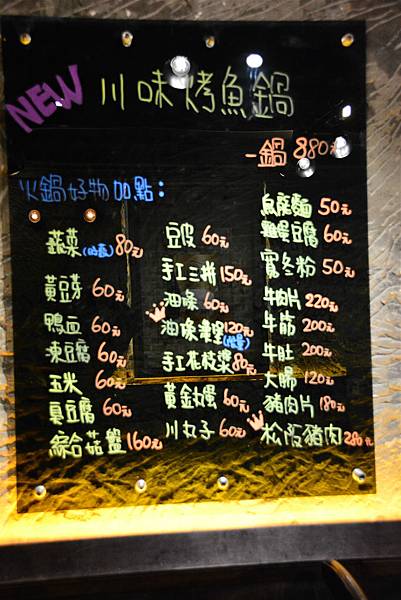 NEW 川味烤魚鍋
一鍋 880元
火鍋好物加點：
蔬菜 80元
黃豆芽 60元
鴨血 60元
凍豆腐 60元
玉米 60元
臭豆腐 60元
綜合菇盤 160元
豆皮 60元
手工三拼 150元
油條 60元
油條 120元
手工花枝漿 80元
黃金 60元
川丸子 60元
麵 50元
雞蛋豆腐 60元
寬冬粉 50元
牛肉片 220元
牛筋 200元
牛肚 200元
大腸 120元
豬肉片 180元
松阪豬肉 280元